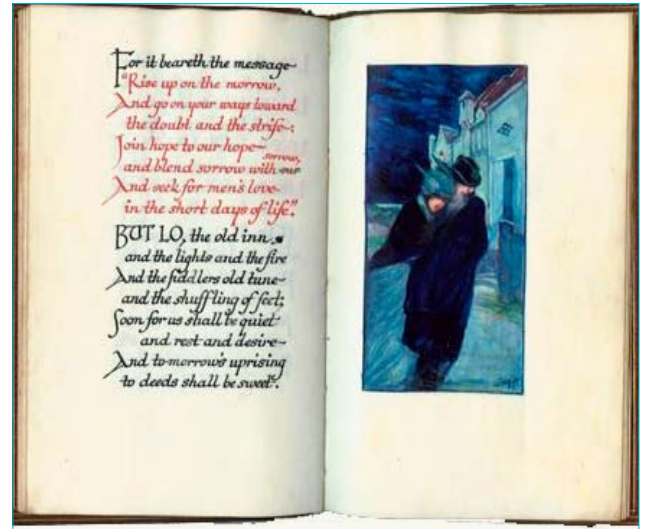 For it beareth the message
"Rise up on the morrow,
And go on your ways toward
the doubt and the strife:
Join hope to our hope
sorrow,
and blend sorrow with our
And seek for men's love
in the short days of life."
BUT LO, the old inn
and the lights and the fire
And the fiddlers old tune
and the shuffling of feet;
Soon for us shall be quiet
and rest and desire
And to-morrow's uprising
to deeds shall be sweet.